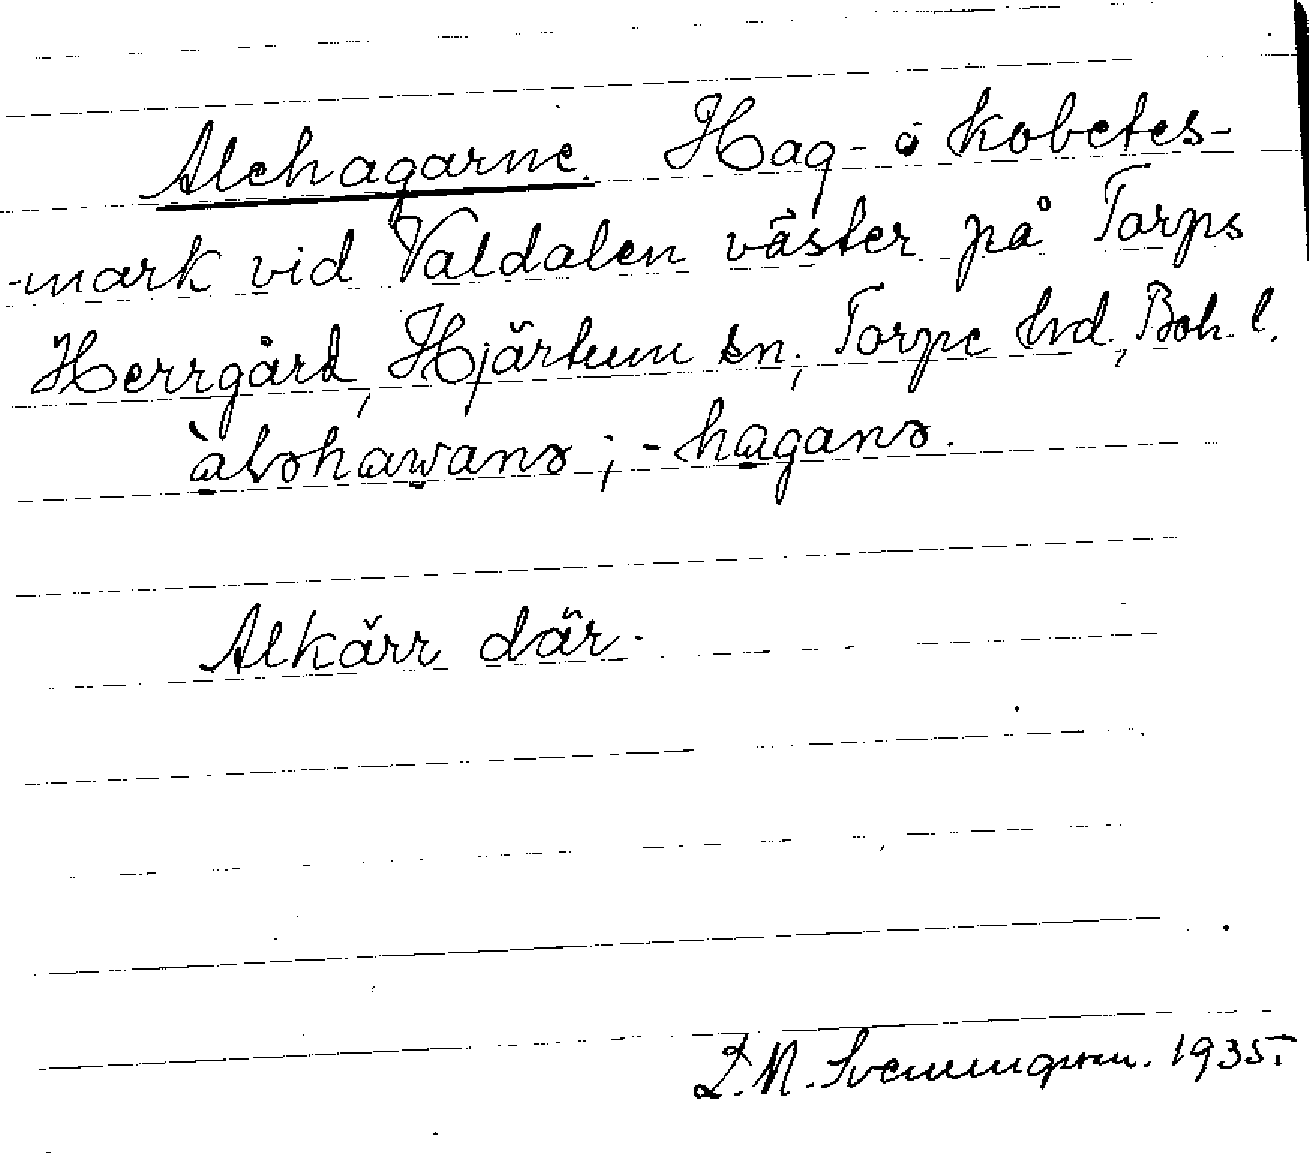 Alehagarne. Hag- o kobetes-
-mark vid Valdalen väster på Torps
Herrgård, Hjärtum sn, Torpe hd, Boh. l.
àləhawanə; -haganə.
Alkärr där.
D. N. Svenningson. 1935.